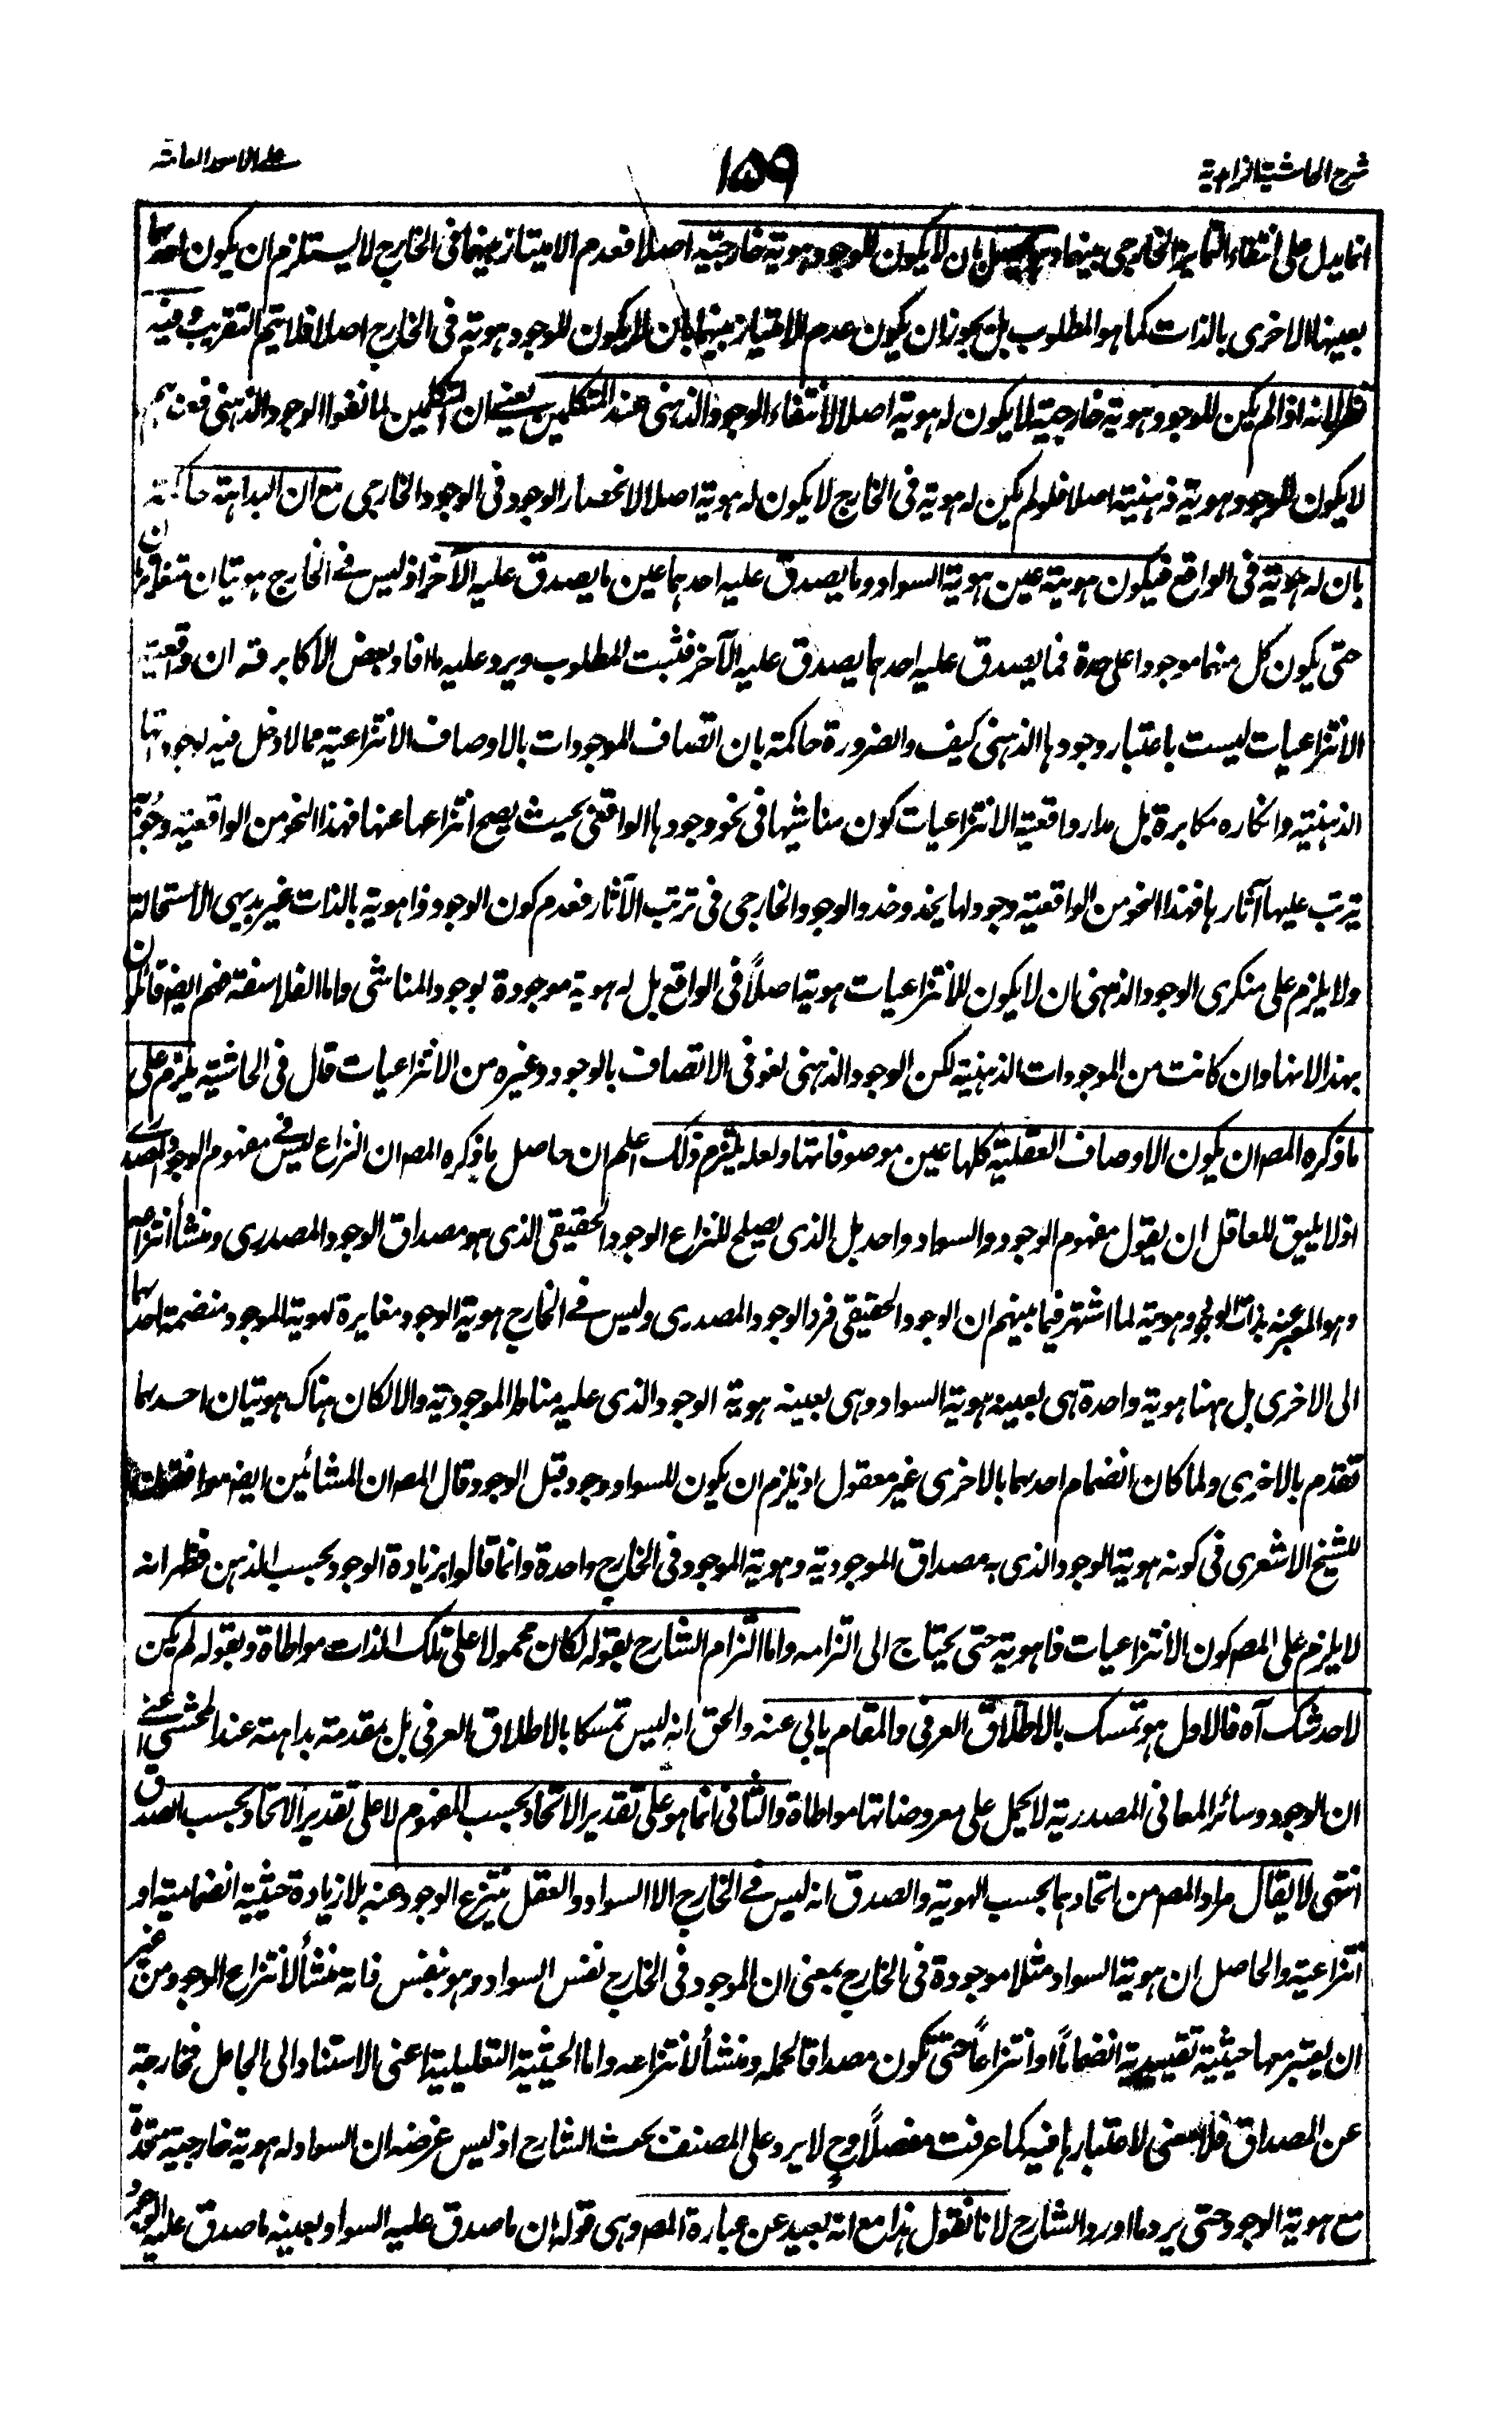 شرح الحاشية الزاهدية
١٥٩
على الامور العامة
انما يدل على انتفاء التمايز الخارجي بينهما و بان لا يكون للوجود هوية خارجية اصلا فعدم الامتياز بينهما في الخارج لا يستلزم ان يكون احدهما
بعينها الاخرى بالذات كما هو المطلوب بل يجوز ان يكون عدم الامتياز بينهما بان لا يكون للوجود هوية في الخارج اصلا فلا يتم التقريب فيه
نظر لانه اذا لم يكن للوجود هوية خارجية لا يكون له هوية اصلا لانتفاء الوجود الذهني عند المتكلمين يعني ان المتكلمين لما نفوا الوجود الذهني فعندهم
لا يكون للوجود هوية ذهنية اصلا فلو لم يكن له هوية في الخارج لا يكون له هوية اصلا لانحصار الوجود في الوجود الخارجي مع ان البداهة حاكمة
بان له هوية في الواقع فيكون هويته عين هوية السواد وما يصدق عليه احدهما عين ما يصدق عليه الآخر اذ ليس في الخارج هويتان متغايرتان
حتى يكون كل منهما موجودا على حدة فما يصدق عليه احدهما يصدق عليه الآخر فثبت المطلوب ويرد عليه ما افاد بعض الاكابر قه ان واقعية
الانتزاعيات ليست باعتبار وجودها الذهني كيف والضرورة حاكمة بان اتصاف الموجودات بالاوصاف الانتزاعية مما لا دخل فيه لوجوداتها
الذهنية وانكاره مكابرة بل مدار واقعية الانتزاعيات كون مناشيها في نحو وجودها الواقعي بحيث يصح انتزاعها عنها فهذا النحو من الواقعية وجود
يترتب عليها آثارها فهذا النحو من الواقعية وجود لها يحذو حذو الوجود الخارجي في ترتب الآثار فعدم كون الوجود ذا هوية بالذات غير بديهي الاستحالة
ولا يلزم على منكري الوجود الذهني ان لا يكون للانتزاعيات هوية اصلاً في الواقع بل له هوية موجودة بوجود المناشي واما الفلاسفة فهم ايضا قائلون
بهذا لانها وان كانت من الموجودات الذهنية لكن الوجود الذهني لغو في الاتصاف بالوجود وغيره من الانتزاعيات قال في الحاشية يلزم على
ما ذكره المصـ ان يكون الاوصاف العقلية كلها عين موصوفاتها ولعله يلتزم ذلك اعلم ان حاصل ما ذكره المصـ ان النزاع ليس في مفهوم الوجود المصدري
اذ لا يليق للعاقل ان يقول مفهوم الوجود والسواد واحد بل الذي يصلح للنزاع الوجود الحقيقي الذي هو مصداق الوجود المصدري ومنشأ انتزاعه
وهو المعبر عنه بذات الوجود هوية لما اشتهر فيما بينهم ان الوجود الحقيقي فرد الوجود المصدري وليس في الخارج هوية الوجود مغايرة لهوية الموجود منضمة احدهما
الى الاخرى بل ههنا هوية واحدة هي بعينه هوية السواد وهي بعينه هوية الوجود الذي عليه مناط الموجودية والا لكان هناك هويتان احدهما
تقدم بالاخرى ولما كان انضمام احدهما بالاخرى غير معقول اذ يلزم ان يكون للسواد وجود قبل الوجود قال المصـ ان المشائين ايضا موافقون
للشيخ الاشعري في كونه هوية الوجود الذي به مصداق الموجودية وهوية الموجود في الخارج واحدة وانما قالوا بزيادة الوجود بحسب الذهن فظهر انه
لا يلزم على المصـ كون الانتزاعيات ذا هوية حتى يحتاج الى التزامه واما التزام الشارح بقوله لكان محمولا على تلك الذات مواطاة وبقوله لم يكن
لاحد شك آه فالاول هو تمسك بالاطلاق العرفي والمقام يابى عنه والحق انه ليس تمسكا بالاطلاق العرفي بل بمقدمة بداهته عند المحشي اعني
ان الوجود وسائر المعاني المصدرية لا يحمل على معروضاتها مواطاة والثاني انما هو على تقدير الاتحاد بحسب المفهوم لا على تقدير الاتحاد بحسب الصدق
انتهى لا يقال مراد المصـ من اتحادهما بحسب الهوية والصدق انه ليس في الخارج الا السواد والعقل ينتزع الوجود عنه بلا زيادة حيثية انضمامية او
انتزاعية والحاصل ان هوية السواد مثلا موجودة في الخارج بمعنى ان الموجود في الخارج نفس السواد وهو بنفس ذاته منشأ لانتزاع الوجود من غير
ان يعتبر معها حيثية تقييدية انضماماً او انتزاعاً حتى تكون مصداقا لحمله ومنشأ لانتزاعه واما الحيثية التعليلية اعني الاستناد الى الجاعل فخارجة
عن المصداق فلا معنى لاعتبارها فيه كما عرفت مفصلاً وح لا يرد على المصنف بحث الشارح اذ ليس غرضه ان السواد له هوية خارجية متحدة
مع هوية الوجود حتى يرد ما اورد الشارح لانا نقول هذا مع انه بعيد عن عبارة المصـ وهي قوله ان ما صدق عليه السواد بعينه ما صدق عليه الوجود